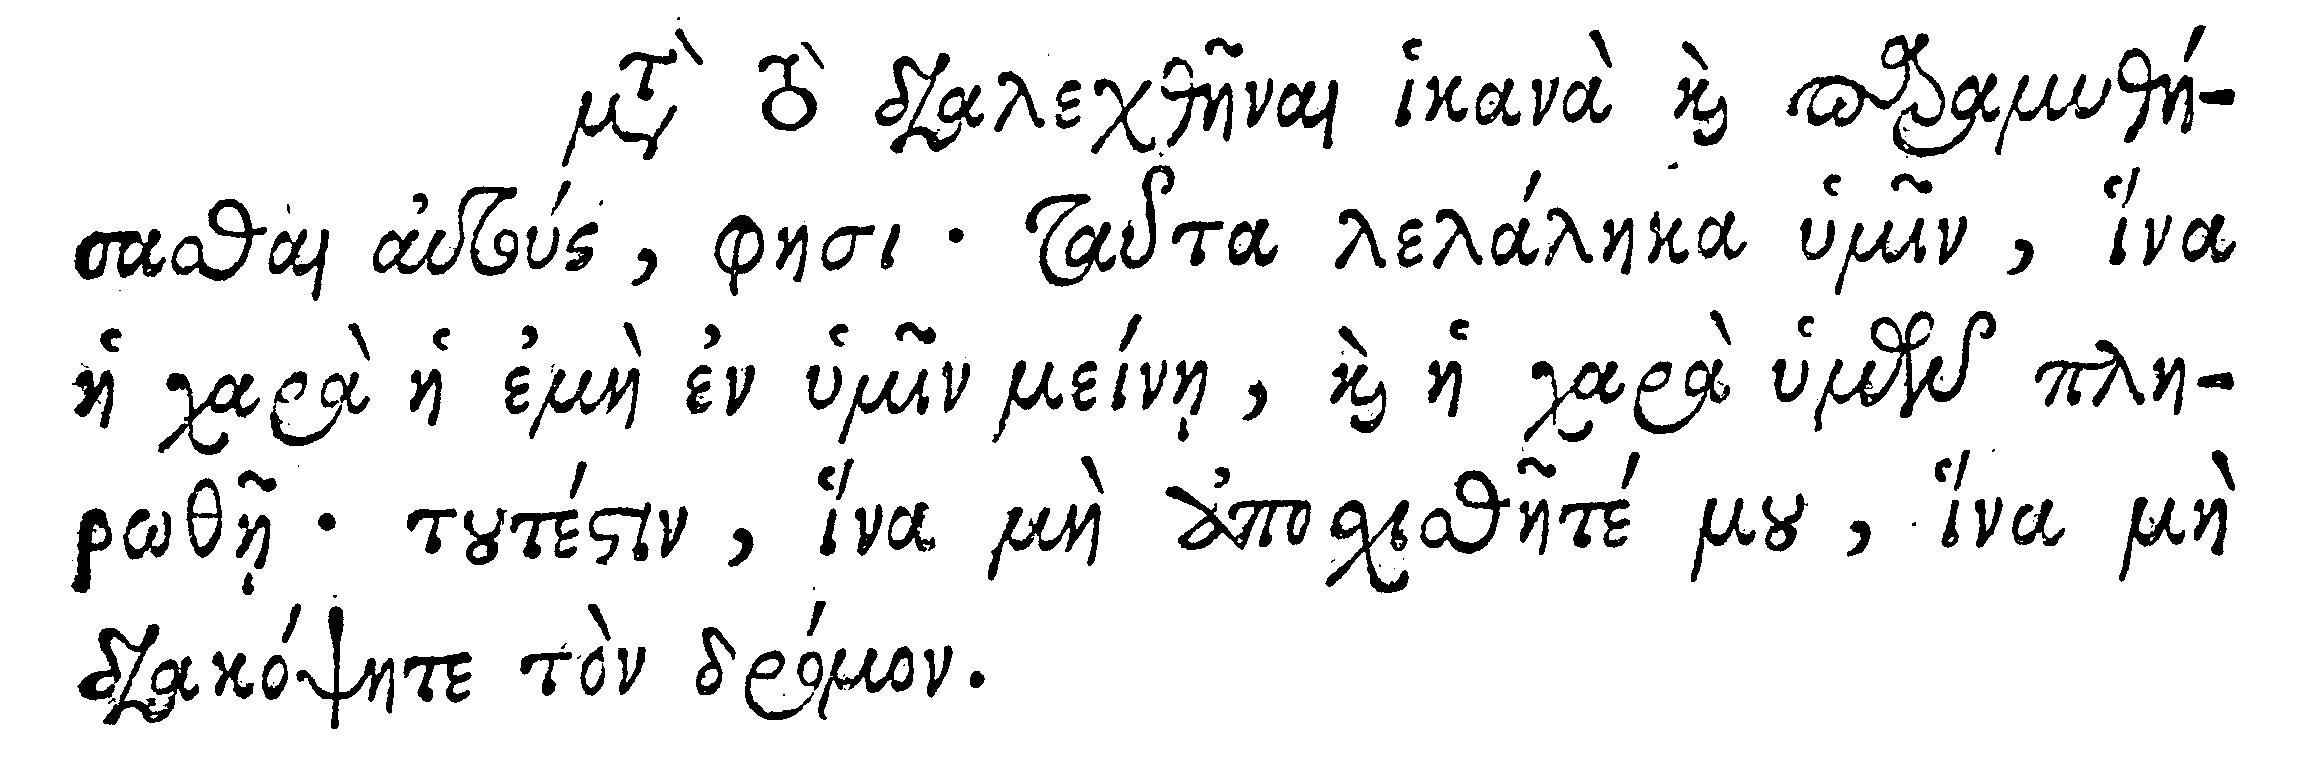 μετὰ τὸ διαλεχθῆναι ἱκανὰ καὶ παραμυθή-
σασθαι αὐτούς, φησι· ταῦτα λελάληκα ὑμῖν, ἵνα
ἡ χαρὰ ἡ ἐμὴ ἐν ὑμῖν μείνῃ, καὶ ἡ χαρὰ ὑμῶν πλη-
ρωθῇ· τουτέστιν, ἵνα μὴ ἀποσχισθῆτέ μου, ἵνα μὴ
διακόψητε τὸν δρόμον.